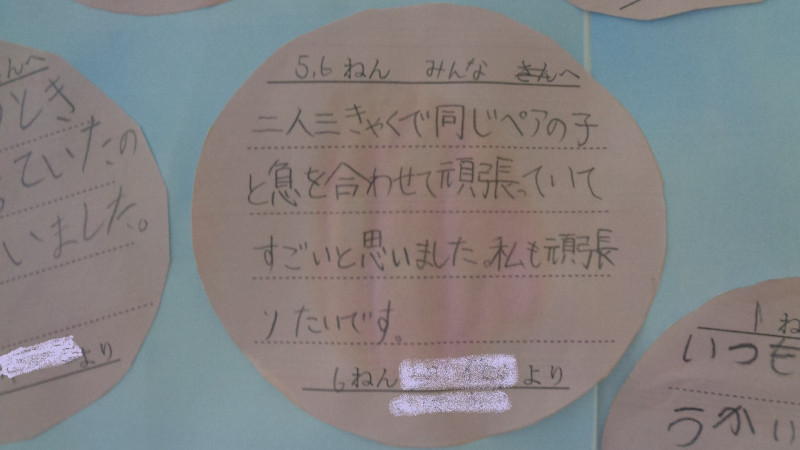 んへ
とき
っていたの
いました。
より
5,6 ねん みんな さんへ
二人三きゃくで同じペアの子
と急を合わせて頑張っていて
すごいと思いました。私も頑張
りたいです。
6ねん より
1 ね
いつも
うかい